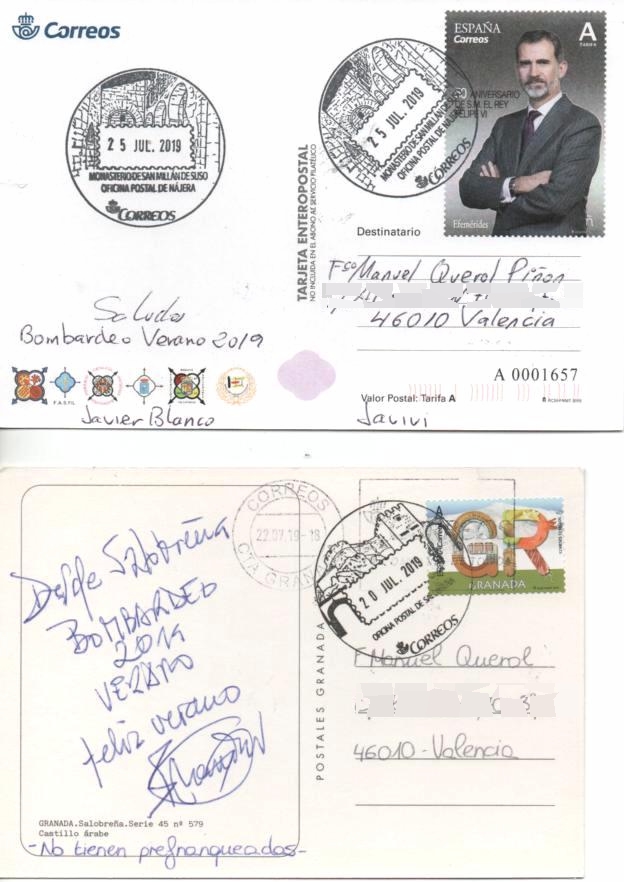 Correos
ESPAÑA
Correos
A
TARIFA
50 ANIVERSARIO
DE S.M. EL REY
FELIPE VI
Efemérides
25 JUL. 2019
MONASTERIO DE SAN MILLÁN DE SUSO
OFICINA POSTAL DE NÁJERA
CORREOS
25 JUL. 2019
MONASTERIO DE SAN MILLÁN DE SUSO
OFICINA POSTAL DE NÁJERA
CORREOS
TARJETA ENTEROPOSTAL
NO INCLUIDA EN EL ABONO AL SERVICIO FILATÉLICO
Destinatario
Fco Manuel Querol Piñón
46010 Valencia
Saludos
Bombardeo Verano 2019
F.A.S.FIL
Javier Blanco
A 0001657
Valor Postal: Tarifa A
Javivi
CORREOS
22.07.19-18
CTA GRANADA
20 JUL. 2019
OFICINA POSTAL DE
CORREOS
A
GR
GRANADA
Desde Salobreña
BOMBARDEO
2019
VERANO
feliz verano
POSTALES GRANADA
F Manuel Querol
46010-Valencia
GRANADA.Salobreña.Serie 45 nº 579
Castillo Árabe
-No tienen prefranqueados-